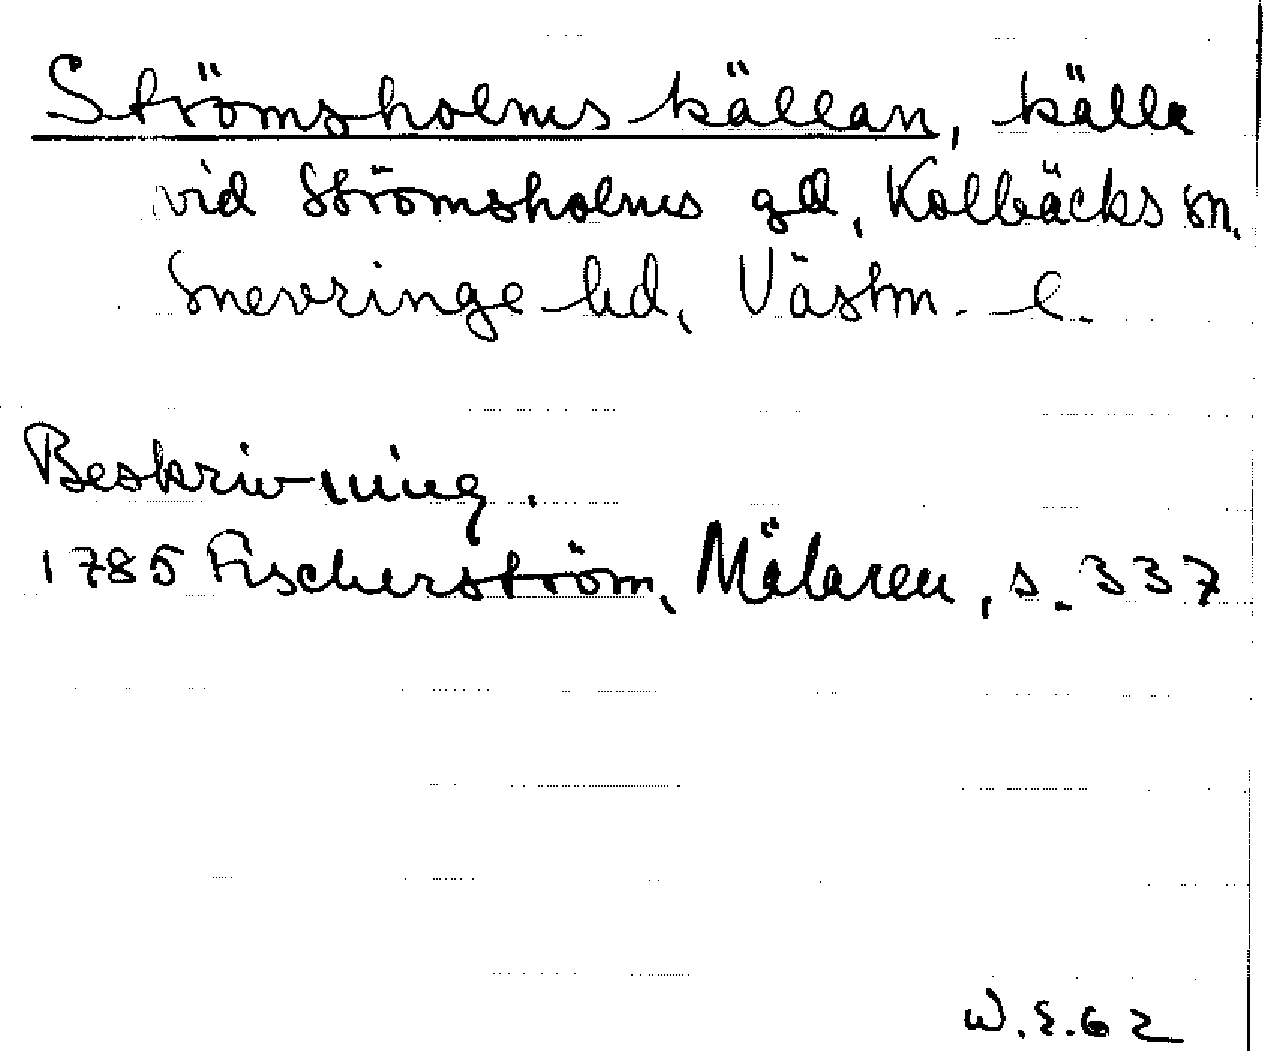 Strömsholmskällan, källa
vid Strömsholms gd, Kolbäcks sn.
Snevringe hd, Västm. l.
Beskrivning.
1785 Fischerström, Mälaren, s. 337
W.E.62